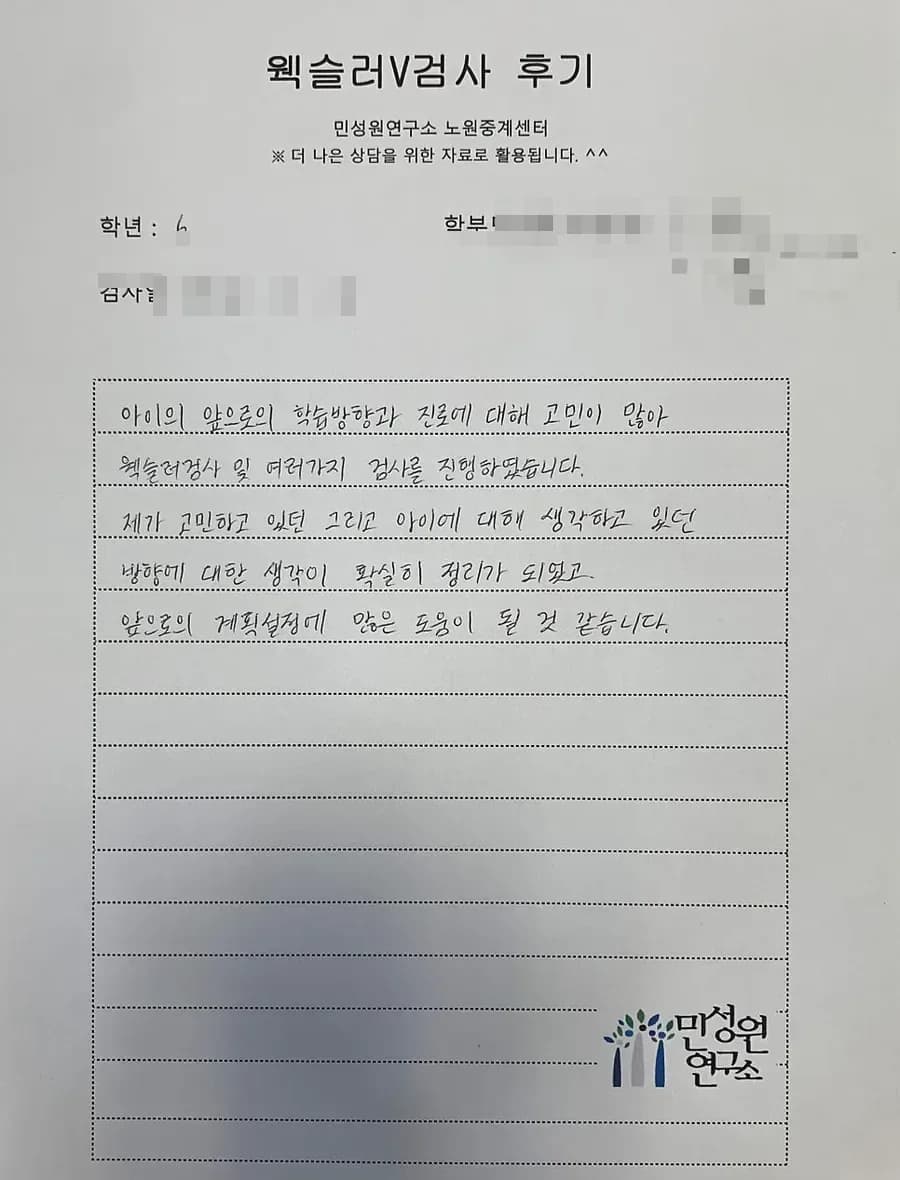 웩슬러V검사 후기
민성원연구소 노원중계센터
※ 더 나은 상담을 위한 자료로 활용됩니다. ^^
학년 : 6
학부
검사
아이의 앞으로의 학습방향과 진로에 대해 고민이 많아
웩슬러검사 및 여러가지 검사를 진행하였습니다.
제가 고민하고 있던 그리고 아이에 대해 생각하고 있던
방향에 대한 생각이 확실히 정리가 되었고
앞으로의 계획설정에 많은 도움이 될 것 같습니다.
민성원
연구소